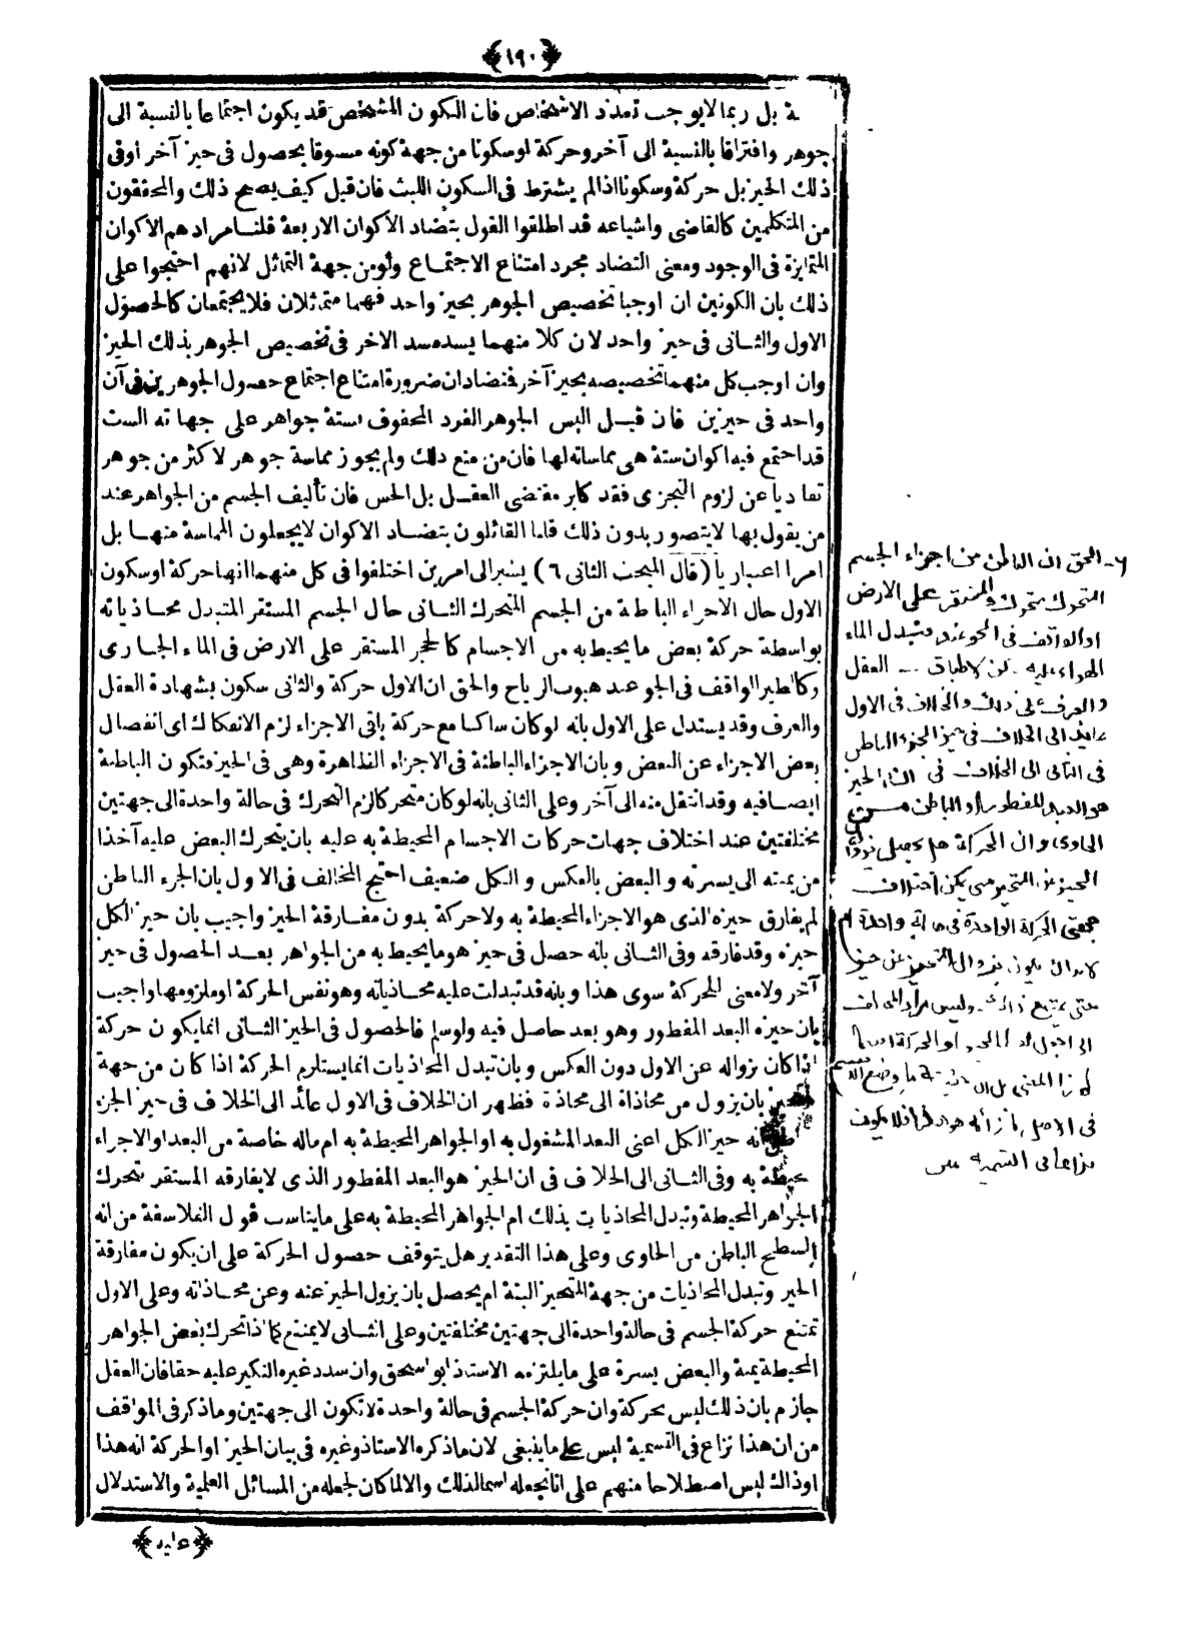 ﴿١٩٠﴾
ة بل ربما لا يوجب تعدد الاشخاص فان الكون المشخص قد يكون اجتماعا بالنسبة الى
جوهر وافتراقا بالنسبة الى آخر وحركة او سكونا من جهة كونه مسبوقا بحصول فى حيز آخر او فى
ذلك الحيز بل حركة وسكونا اذا لم يشترط فى السكون اللبث فان قيل كيف يصح ذلك والمحققون
من المتكلمين كالقاضى واشياعه قد اطلقوا القول بتضاد الأكوان الاربعة قلنا مرادهم الاكوان
المتمايزة فى الوجود ومعنى التضاد مجرد امتناع الاجتماع ولو من جهة التماثل لانهم احتجوا على
ذلك بان الكونين ان اوجبا تخصيص الجوهر بحيز واحد فهما متماثلان فلا يجتمعان كالحصول
الاول والثانى فى حيز واحد لان كلا منهما يسد مسد الاخر فى تخصيص الجوهر بذلك الحيز
وان اوجب كل منهما تخصيصه بحيز آخر فتضادان ضرورة امتناع اجتماع حصول الجوهر ين فى آن
واحد فى حيزين فان قيل اليس الجوهر الفرد المحفوف بستة جواهر على جهاته الست
قد اجتمع فيه اكوان ستة هى مماساته لها فان من منع ذلك ولم يجوز مماسة جوهر لاكثر من جوهر
تفاديا عن لزوم التجزى فقد كابر مقتضى العقل بل الحس فان تأليف الجسم من الجواهر عند
من يقول بها لا يتصور بدون ذلك قلنا القائلون بتضاد الاكوان لا يجعلون المماسة منها بل
امرا اعتباريا (قال المبحث الثانى ٦) يشير الى امرين اختلفوا فى كل منهما انها حركة او سكون
الاول حال الاجزاء الباطنة من الجسم المتحرك الثانى حال الجسم المستقر المتبدل محاذياته
بواسطة حركة بعض ما يحيط به من الاجسام كالحجر المستقر على الارض فى الماء الجارى
وكالطير الواقف فى الجو عند هبوب الرياح والحق ان الاول حركة والثانى سكون بشهادة العقل
والعرف وقد يستدل على الاول بانه لو كان ساكنا مع حركة باقى الاجزاء لزم الانفكاك اى انفصال
بعض الاجزاء عن البعض وبان الاجزاء الباطنة فى الاجزاء الظاهرة وهى فى الحيز فتكون الباطنة
ايضا فيه وقد انتقل منه الى آخر وعلى الثانى بانه لو كان متحركا لزم التحرك فى حالة واحدة الى جهتين
مختلفتين عند اختلاف جهات حركات الاجسام المحيطة به عليه بان يتحرك البعض عليه آخذا
من يمنته الى يسرته والبعض بالعكس والكل ضعيف احتج المخالف فى الاول بان الجزء الباطن
لم يفارق حيزه الذى هو الاجزاء المحيطة به ولا حركة بدون مفارقة الحيز واجيب بان حيز الكل
حيزه وقد فارقه وفى الثانى بانه حصل فى حيز هو ما يحيط به من الجواهر بعد الحصول فى حيز
آخر ولا معنى للحركة سوى هذا وبانه قد تبدلت عليه محاذياته وهو نفس الحركة او ملزومها واجيب
بان حيزه البعد المفطور وهو بعد حاصل فيه ولو سلم فالحصول فى الحيز الثانى انما يكون حركة
اذا كان بزواله عن الاول دون العكس وبان تبدل المحاذيات انما يستلزم الحركة اذا كان من جهة
بان يزول من محاذاة الى محاذة فظهر ان الخلاف فى الاول عائد الى الخلاف فى حيز الجز
انه حيز الكل اعنى البعد المشغول به او الجواهر المحيطة به ام ماله خاصة من البعد او الاجزاء
محيطة به وفى الثانى الى الخلاف فى ان الحيز هو البعد المفطور الذى لا يفارقه المستقر بتحرك
الجواهر المحيطة وتبدل المحاذيات بذلك ام الجواهر المحيطة به على ما يناسب قول الفلاسفة من انه
السطح الباطن من الحاوى وعلى هذا التقدير هل يتوقف حصول الحركة على ان يكون مفارقة
الحيز وتبدل المحاذيات من جهة المتحيز البتة ام يحصل بان يزول الحيز عنه وعن محاذاته وعلى الاول
تمتنع حركة الجسم فى حالة واحدة الى جهتين مختلفتين وعلى الثانى لا يمتنع كما اذا تحرك بعض الجواهر
المحيطة يمنة والبعض يسرة على ما يلتزمه الاستاذ ابو اسحق وان سدد غيره النكير عليه حقا فان العقل
جازم بان ذلك ليس بحركة وان حركة الجسم فى حالة واحدة لا تكون الى جهتين وما ذكر فى المواقف
من ان هذا نزاع فى التسمية ليس على ما ينبغى لان ما ذكره الاستاذ وغيره فى بيان الحيز او الحركة انه هذا
او ذاك ليس اصطلاحا منهم على انا نجعله اسما لذلك والا لما كان لجعله من المسائل العلمية والاستدلال
﴿عليه﴾
٦- الحق ان الباطن من اجزاء الجسم
المتحرك متحرك والمستقر على الارض
او الواقف فى الجو عند تبدل الماء
والهواء عليه لاطباق العقل
والعرف على ذلك والخلاف فى الاول
عائد الى الخلاف فى حيز الجزء الباطن
فى الثانى الى الخلاف فى ان الحيز
هو البعد المفطور او الباطن من
الحاوى وان الحركة هل يحصل بزوال
الحيز عن المتحيز حتى يمكن اختلاف
جهتى الحركة الواحدة فى حالة واحدة ام
لابد ان يكون بزوال المتحيز عن حيز
حتى يمتنع ذلك وليس مراد المخالف
انا نجعل او الحركة اسما
لهذا المعنى ما وضع الاسم
فى الاصل بازائه هو هذا فلا يكون
نزاعا فى التسمية متن